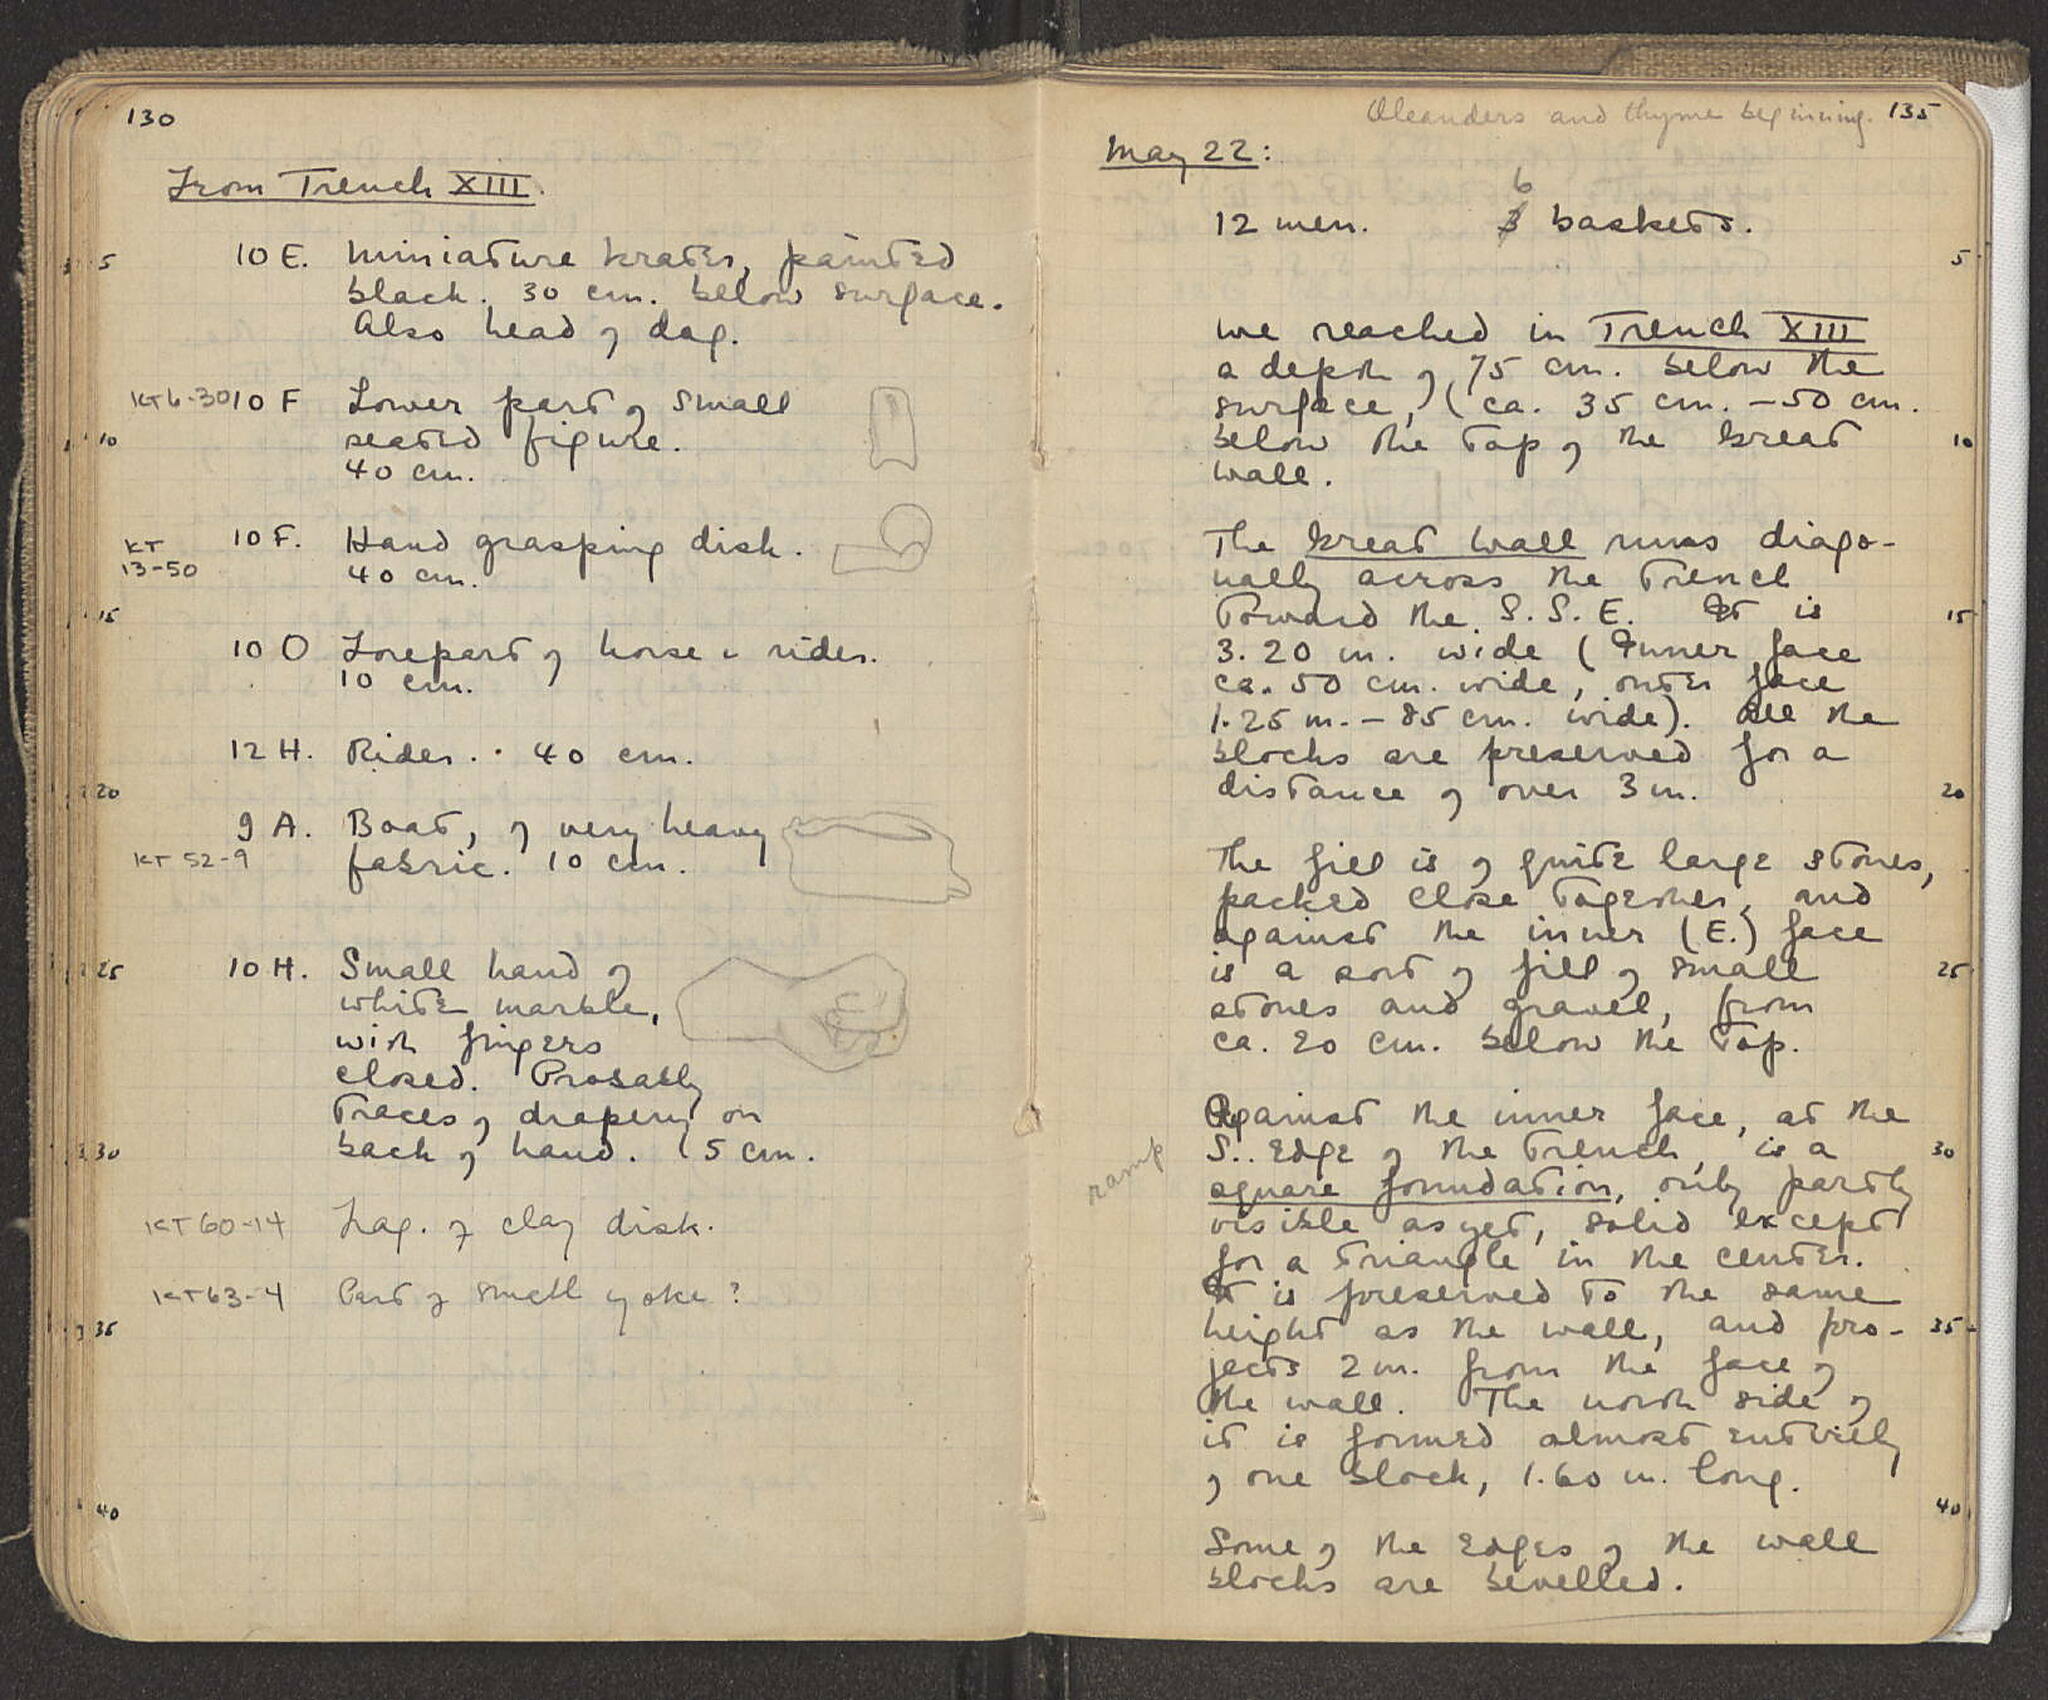 130
From Trench XIII.
5
10 E. Miniature krater, painted
black. 30 cm. below surface.
Also head of dog.
KT6-30 10 F Lower part of small
10
seated figure.
40 cm.
10 F. Hand grasping disk.
KT
13-50
40 cm.
15
10 O Forepart of horse & rider.
10 cm.
12 H. Rider. 40 cm.
20
9 A. Boat, of very heavy
KT 52-9
fabric. 10 cm.
25
10 H. Small hand of
white marble,
with fingers
closed. Probably
traces of drapery on
30
back of hand. 15 cm.
KT60-14 Frag. of clay disk.
KT63-4 Part of small yoke?
35
40
Oleanders and thyme beginning. 135
May 22:
6
12 men. 3 baskets.
5
We reached in Trench XIII
a depth of 75 cm. below the
surface, (ca. 35 cm. - 50 cm.
below the top of the Great 10
wall.
The Great Wall runs diago-
nally across the trench
toward the S.S.E. It is 15
3.20 m. wide (Inner face
ca. 50 cm. wide, outer face
1.25 m. - 85 cm. wide). All the
blocks are preserved for a
distance of over 3 m. 20
The fill is of quite large stones,
packed close together, and
against the inner (E.) face
is a sort of fill of small 25
stones and gravel, from
ca. 20 cm. below the top.
Against the inner face, at the
ramp
S. edge of the trench, is a 30
square foundation, only partly
visible as yet, solid except
for a triangle in the center.
It is preserved to the same
height as the wall, and pro- 35
jects 2 m. from the face of
the wall. The north side of
it is formed almost entirely
of one block, 1.60 m. long.
40
Some of the edges of the wall
blocks are bevelled.